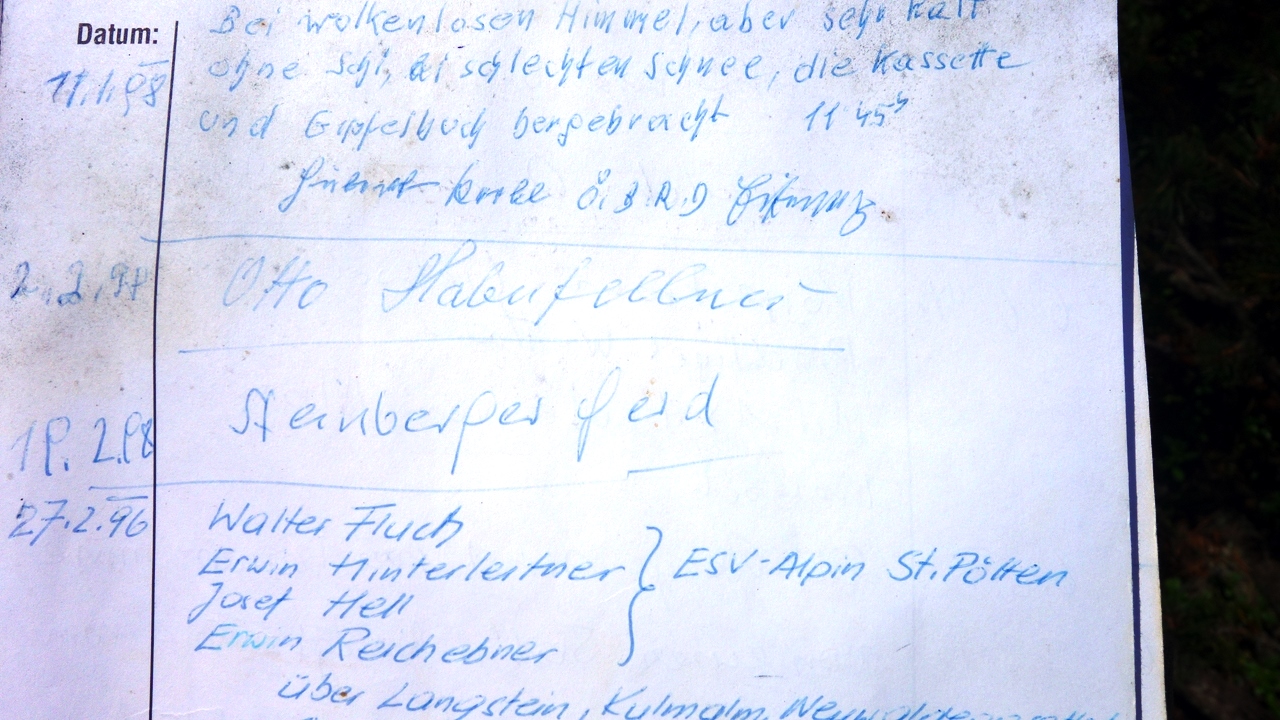 Datum:
Bei wolkenlosen Himmel, aber sehr kalt
11.1.98 ohne Schi, bei schlechten Schnee, die Kassette
und Gipfelbuch bergebracht 11 45h
Ö.B.R.D
2.2.98 Otto
Steinberger Ferd
19.2.98
27.2.96 Walter Fluch
Erwin Hinterleitner } ESV-Alpin St.Pölten
Josef Hell
Erwin Reichebner
über Langstein, Kulmalm,